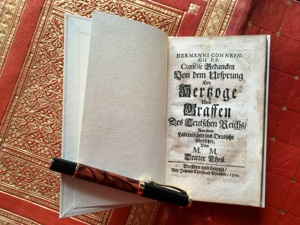 HERMANNI CONNRIN-
GII P. P.
Curiöse Gedancken
Von dem Ursprung
Der
Hertzoge
Und
Graffen
Des Teutschen Reichs/
Aus dem
Lateinischen ins Deutsche
übersetzet,
Von
M. M.
Dritter Theil.
Dreßden und Leipzig/
Bey Johann Christoph